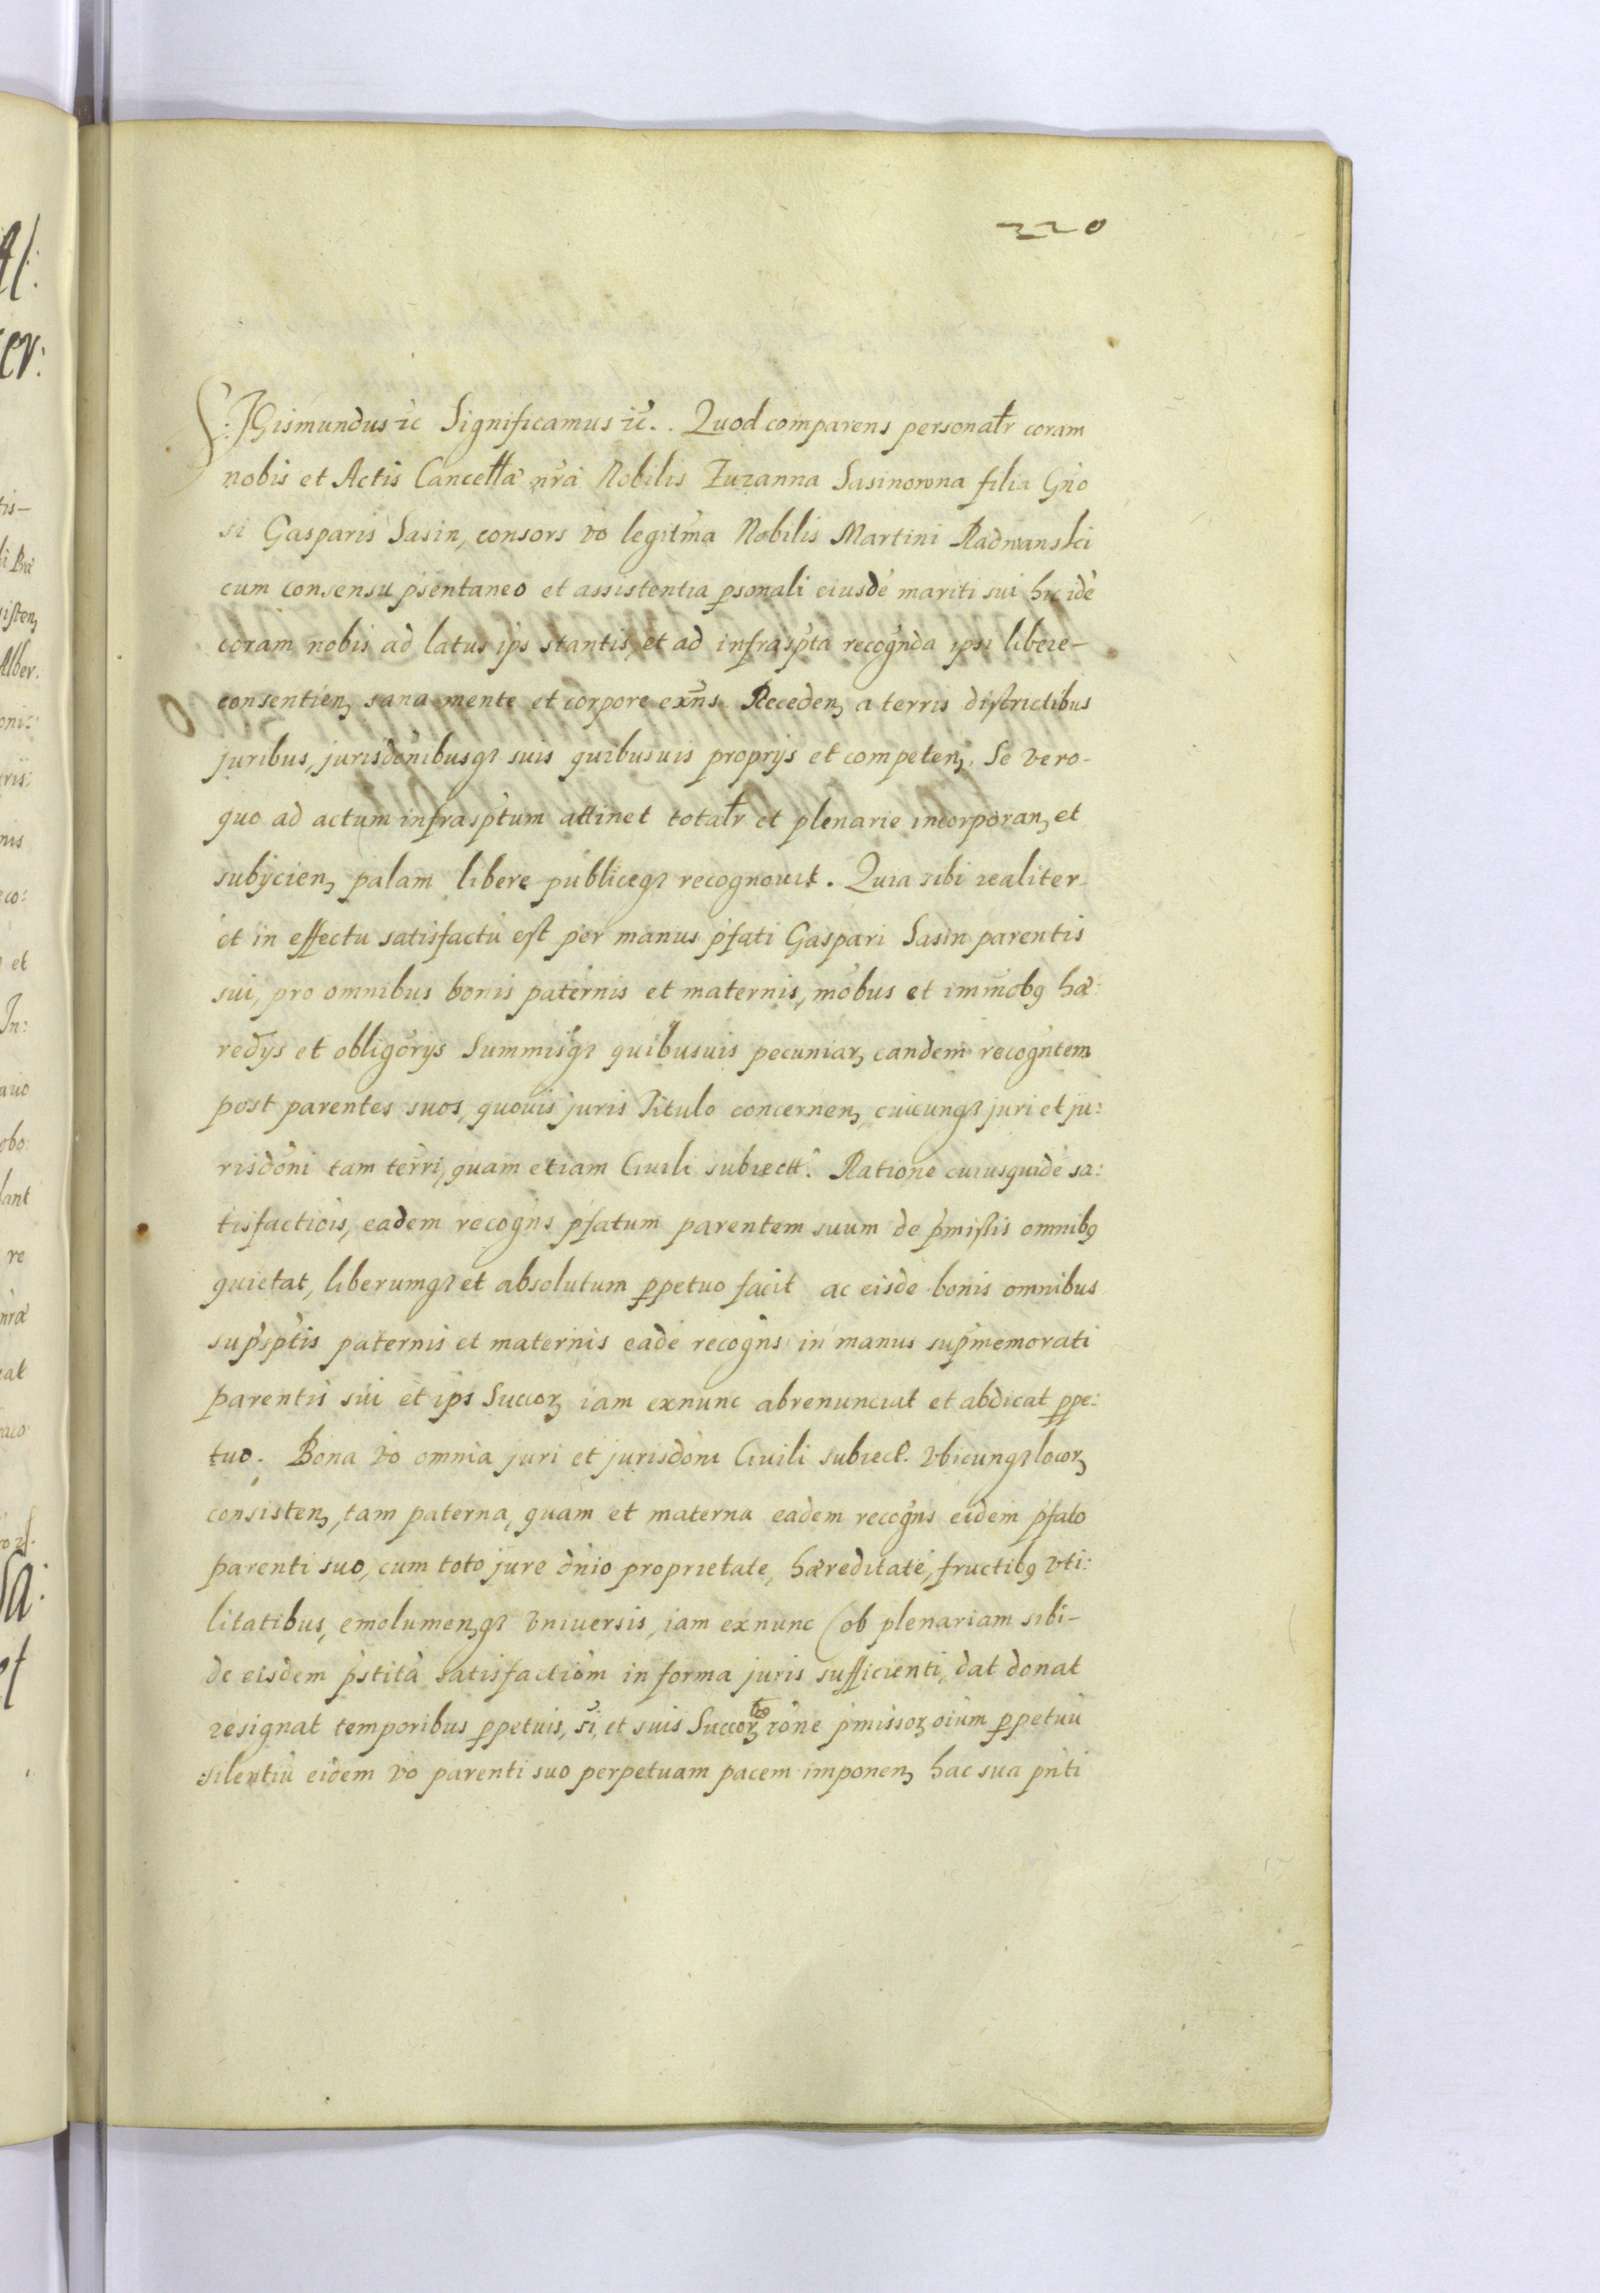 220
SIGismundus etc Significamus etc. Quod comparens personalr coram
nobis et Actis Cancellæ nrã Nobilis Zuzanna Sasinowna filia Gño
si Gasparis Sasin, consors vo legitma Nobilis Martini Radwanski
cum consensu psentaneo et assistentia psonali eiusdẽ mariti sui hic idẽ
coram nobis ad latus ips stantis, et ad infraspta recognda ipsi libere-
consentien, sana mente et corpore exñs. Receden, a terris districtibus
juribus, jurisdõnibusq suis quibusuis proprijs et competen,. Se vero-
quo ad actum infrasptum attinet totalr et plenarie incorporan, et
subijcien, palam libere publiceq recognouit. Quia sibi realiter
et in effectu satisfactũ est per manus pfati Gaspari Sasin parentis
sui, pro omnibus bonis paternis et maternis, mobus et immobq hæ:
redijs et obligorijs Summisq quibusuis pecuniar, eandem recogntem
post parentes suos, quouis juris Titulo concernen, cuicunq juri et ju:
risdõni tam terri, quam etiam Ciuili subiectt. Ratione cuiusquidẽ sa:
tisfactiois, eadem recogns pfatum parentem suum de pmissis omnibq
quietat, liberumq et absolutum ppetuo facit ac eisdẽ bonis omnibus
supsptis paternis et maternis eadẽ recogns in manus supmemorati
parentis sui et ips Succor, iam exnunc abrenunciat et abdicat ppe:
tuo. Bona vo omnia juri et jurisdõni Ciuili subiect. vbicunq locor,
consisten, tam paterna, quam et materna eadem recogns eidem pfato
parenti suo, cum toto jure dñio proprietate, hæreditatẽ, fructibq vti:
litatibus, emolumen,q vniuersis, iam exnunc (ob plenariam sibi-
de eisdem pstitã satisfactiõm in forma juris sufficienti, dat donat
resignat temporibus ppetuis, si, et suis Succor, rõne pmissor, oium ppetuũ
silentiũ eidem vo parenti suo perpetuam pacem imponen, hac sua pnti